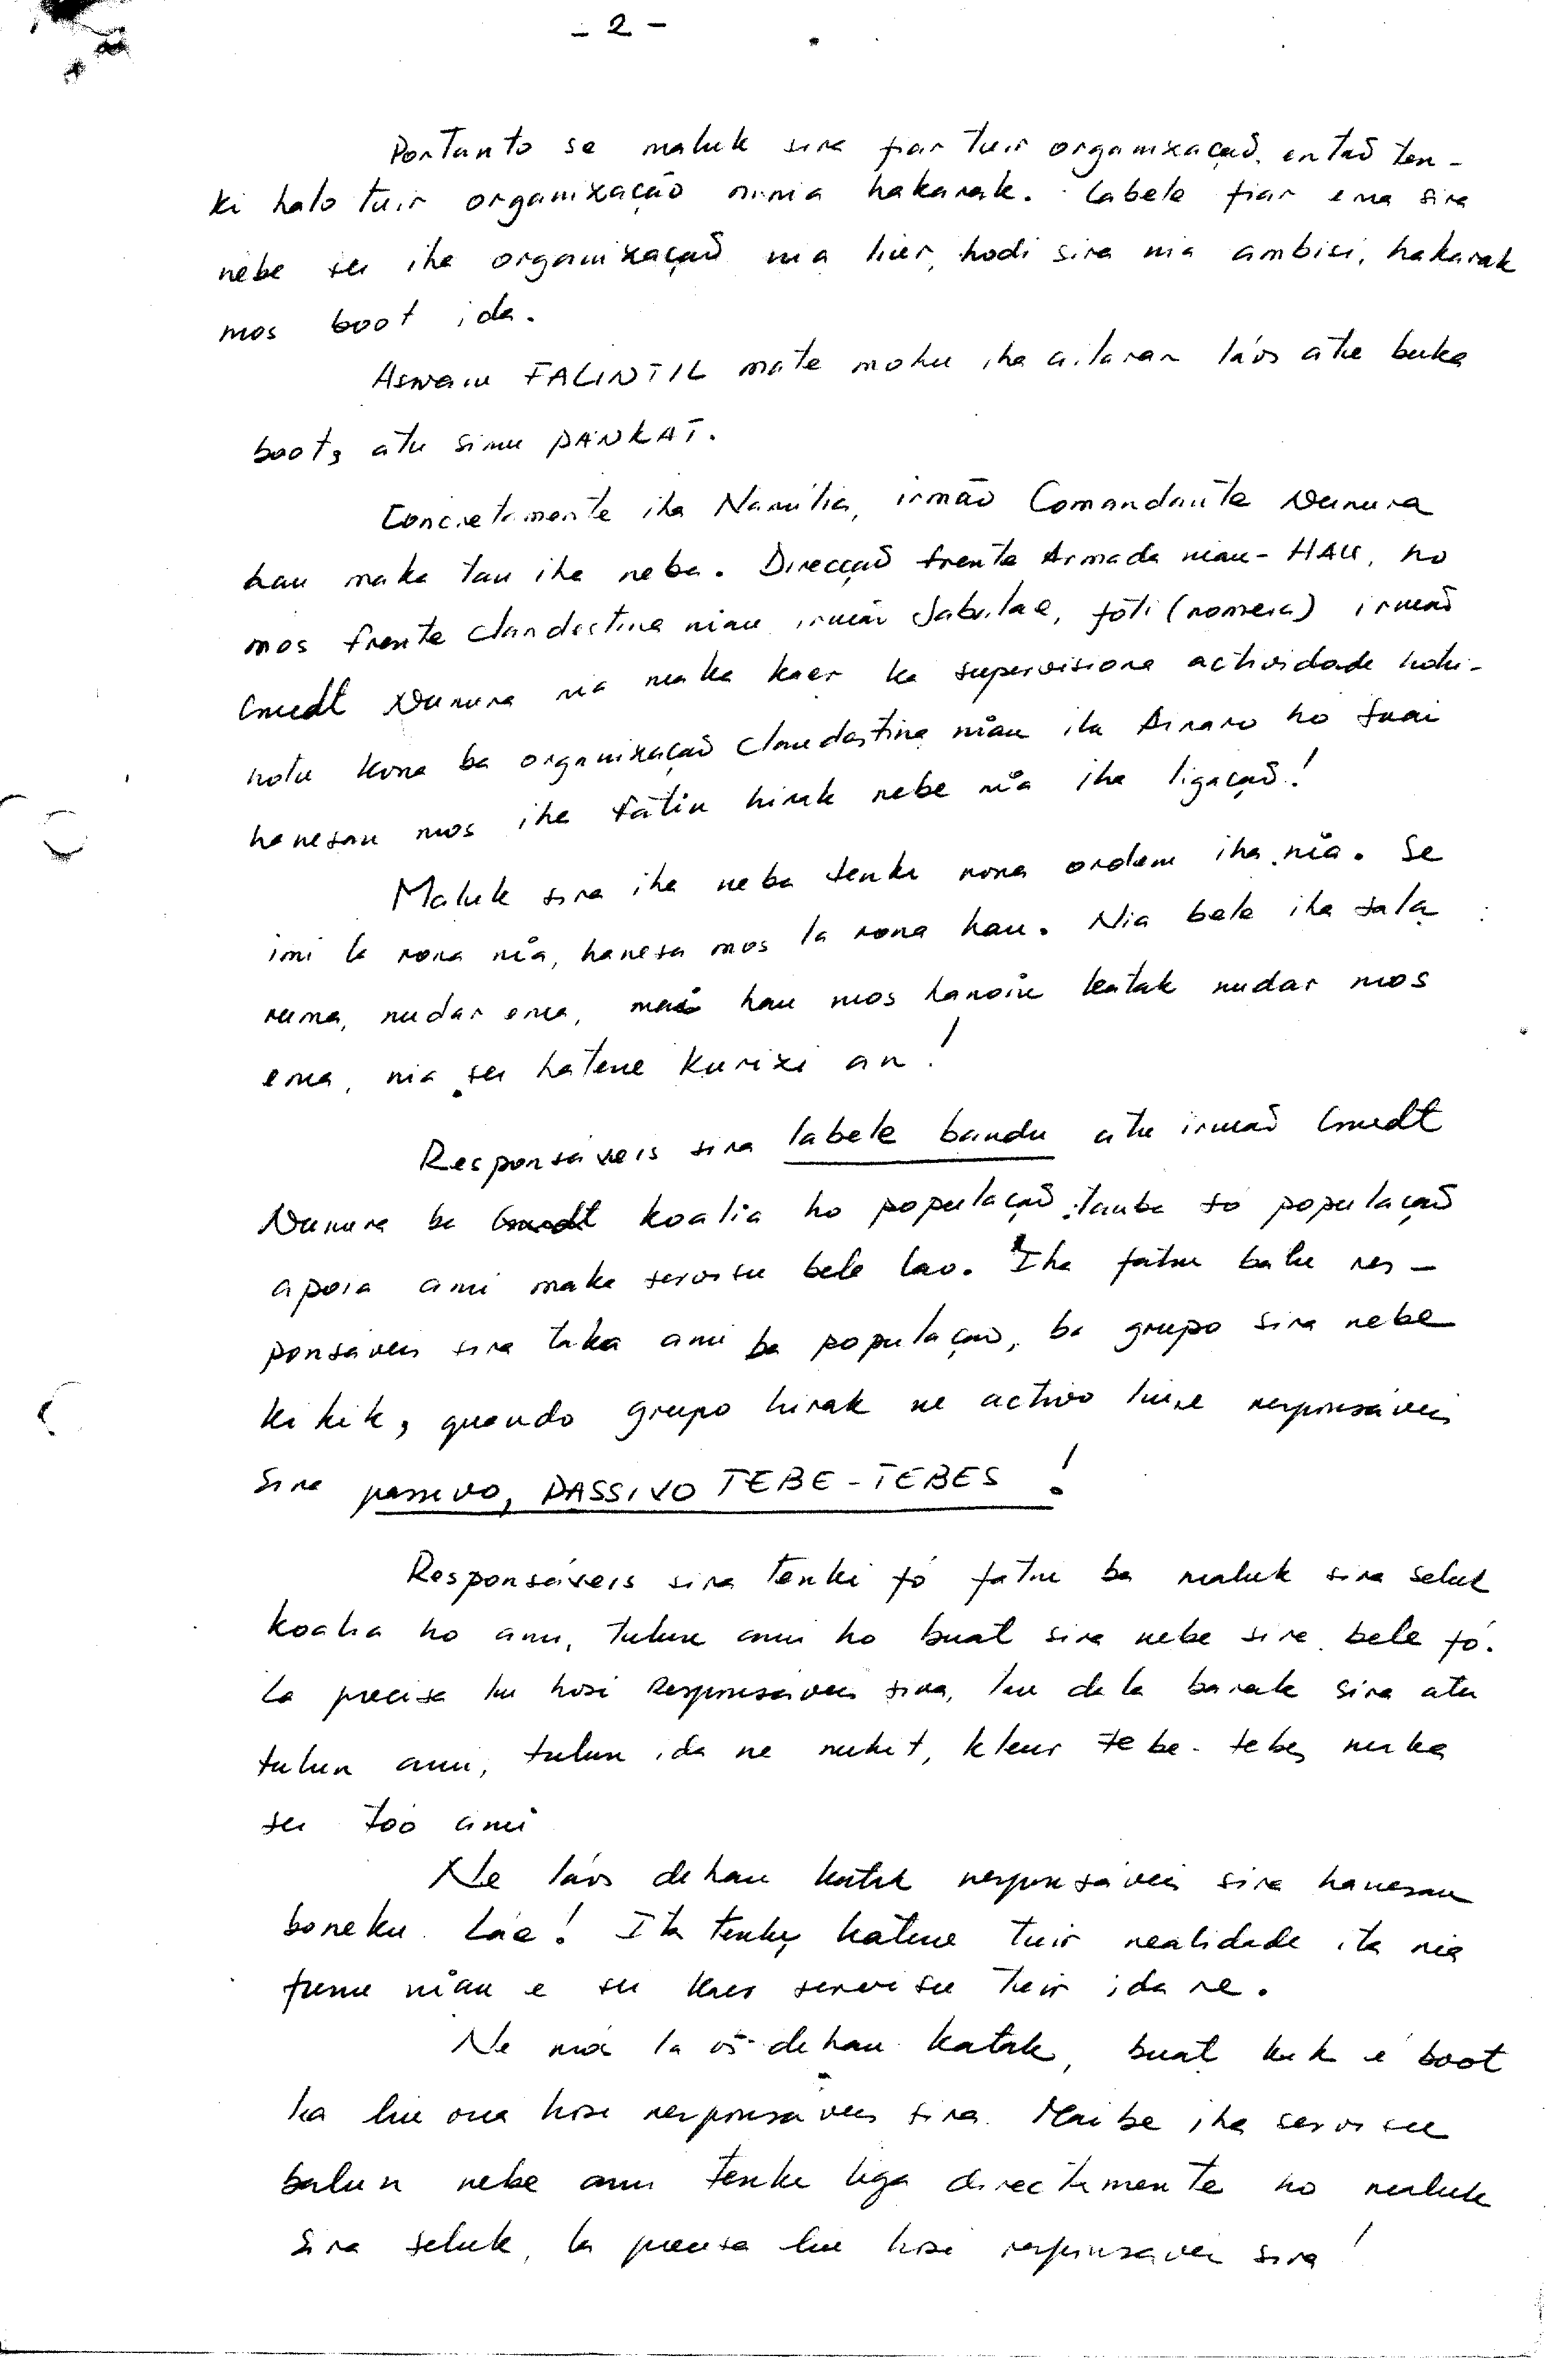 - 2 -
Portanto se maluk sira fiar tuir organixaçaõ, entaõ ten-
ki halo tuir organixação ninia hakarak. Labele fiar ema sira
nebe sei iha organixaçaõ nia liur, hodi sira nia ambisi, hakarak
mos boot ida.
Aswain FALINTIL mate mohu iha ailaran láos atu buka
boot, atu simu PANKAT.
Concretamente iha Namília, irmão Comandante Nunura
hau maka tau iha neba. Direcçaõ frente Armada nian - HAU, ho
mos frente clandestina nian irmaõ Sabalae, foti (nomeia) irmaõ
Cmdt Nunura nia maka kaer ka supervisiona actividade hotu-
hotu kona ba organixaçaõ clandestina nian iha Ainaro ho Suai
hanesan mos iha fatin hirak nebe nia iha ligaçaõ!
Maluk sira iha neba tenki rona ordem iha nia. Se
imi la rona nia, hanesa mos la rona hau. Nia bele iha sala
ruma, nudar ema, mais hau mos hanoin katak nudar mos
ema, nia sei hatene kurixi an!
Responsáveis sira labele bandu atu irmaõ Cmdt
Nunura ba koalia ho populaçaõ, tanba só populaçaõ
apoia ami maka servisu bele lao. Iha fatin balu res-
ponsáveis sira taka ami ba populaçaõ, ba grupo sira nebe
kikik, quando grupo hirak ne activo liu ne responsáveis
sira passivo, PASSIVO TEBE-TEBES!
Responsáveis sira tenki fó fatin ba maluk sira seluk
koalia ho ami, tulun ami ho buat sira nebe sira bele fó.
La precisa liu hosi Responsáveis sira, liu dala barak sira atu
tulun ami, tulun ida ne mukit, kleur tebe-tebes maka
sei too ami
Ne láos dehan katak responsáveis sira hanesan
boneku. Láe! Ita tenki hatene tuir realidade ita nia
funu nian e sei kaer servisu tuir ida ne.
Ne mos la ós dehan katak, buat kiik e boot
la liu ona hosi responsáveis sira. Maibe iha servisu
balun nebe ami tenki liga directamente ho maluk
sira seluk, la precisa liu hosi responsáveis sira!